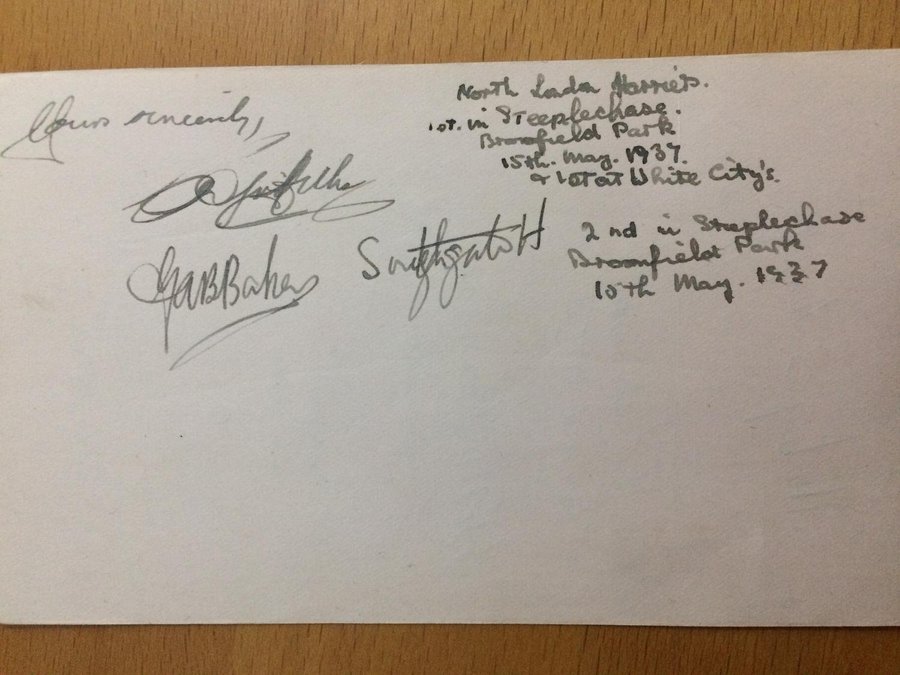 Yours sincerely,
North London Harriers.
1st. in Steeplechase.
Broomfield Park
15th. May. 1937.
& 1st at White City's.
G A B Baker Southgate H
2nd in Steeplechase
Broomfield Park
15th May. 1937